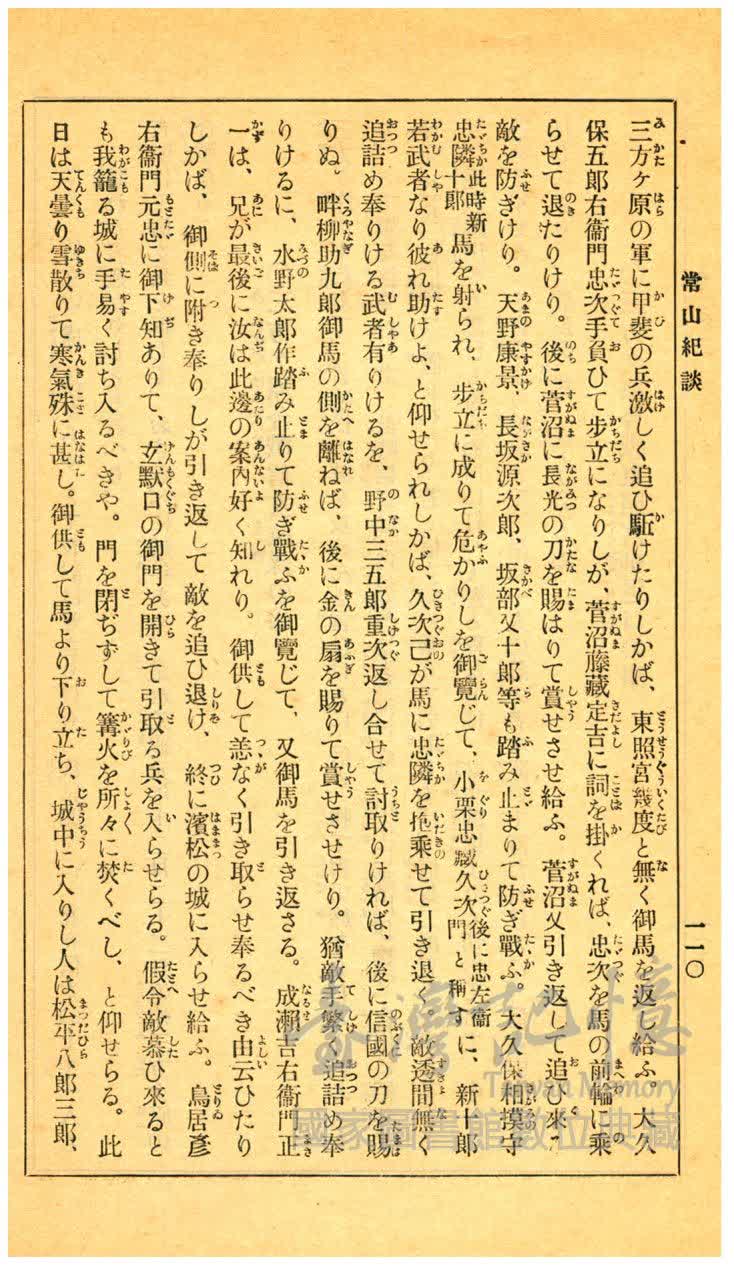 常山紀談
一一〇
三方ヶ原の軍に甲斐の兵激しく追ひ駈けたりしかば、東照宮幾度と無く御馬を返し給ふ。大久
保五郎右衞門忠次手負ひて步立になりしが、菅沼藤藏定吉に詞を掛くれば、忠次を馬の前輪に乘
らせて退たりけり。後に菅沼に長光の刀を賜はりて賞せさせ給ふ。菅沼又引き返して追ひ來る
敵を防ぎけり。天野康景、長坂源次郎、坂部又十郎等も踏み止まりて防ぎ戰ふ。大久保相摸守
忠隣此時新十郎馬を射られ、步立に成りて危かりしを御覽じて、小栗忠藏久次後に忠左衞門と稱すに、新十郎
若武者なり彼れ助けよ、と仰せられしかば、久次己が馬に忠隣を抱乘せて引き退く。敵透間無く
追詰め奉りける武者有りけるを、野中三五郎重次返し合せて討取りければ、後に信國の刀を賜
りぬ。畔柳助九郎御馬の側を離ねば、後に金の扇を賜りて賞せさせけり。猶敵手繁く追詰め奉
りけるに、水野太郎作踏み止りて防ぎ戰ふを御覽じて、又御馬を引き返さる。成瀨吉右衞門正
一は、兄が最後に汝は此邊の案內好く知れり。御供して恙なく引き取らせ奉るべき由云ひたり
しかば、御側に附き奉りしが引き返して敵を追ひ退け、終に濱松の城に入らせ給ふ。鳥居彥
右衞門元忠に御下知ありて、玄默口の御門を開きて引取る兵を入らせらる。假令敵慕ひ來ると
も我籠る城に手易く討ち入るべきや。門を閉ぢずして篝火を所々に焚くべし、と仰せらる。此
日は天曇り雪散りて寒氣殊に甚し。御供して馬より下り立ち、城中に入りし人は松平八郎三郎、
臺灣記憶
Taiwan Memory
國家圖書館數位典藏